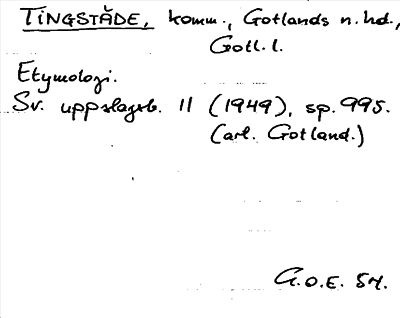 TINGSTÄDE, komm., Gotlands n. hd.,
Gotl. l.
Etymologi.
Sv. uppslagsb. 11 (1949), sp. 995.
(art. Gotland.)
G.O.E. 54.